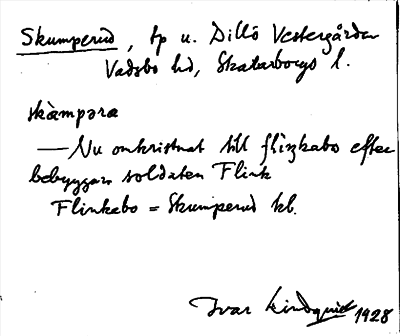 Skumperud, tp u. Dillö Vestergården
Vadsbo hd, Skaraborgs l.
skàmpəra
— Nu omkristnat till flinkabo efter
bebyggaren soldaten Flink
Flinkabo = Skumperud kb.
Ivar Lindquist 1928